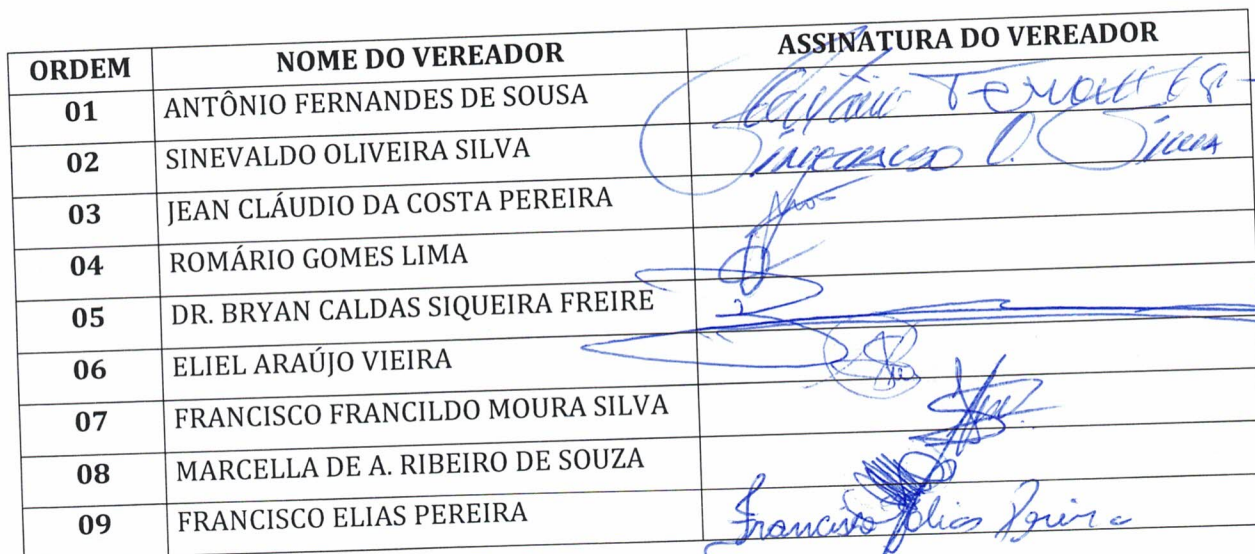 ORDEM NOME DO VEREADOR ASSINATURA DO VEREADOR
01 ANTÔNIO FERNANDES DE SOUSA
02 SINEVALDO OLIVEIRA SILVA
03 JEAN CLÁUDIO DA COSTA PEREIRA
04 ROMÁRIO GOMES LIMA
05 DR. BRYAN CALDAS SIQUEIRA FREIRE
06 ELIEL ARAÚJO VIEIRA
07 FRANCISCO FRANCILDO MOURA SILVA
08 MARCELLA DE A. RIBEIRO DE SOUZA
09 FRANCISCO ELIAS PEREIRA Francisco Elias Pereira